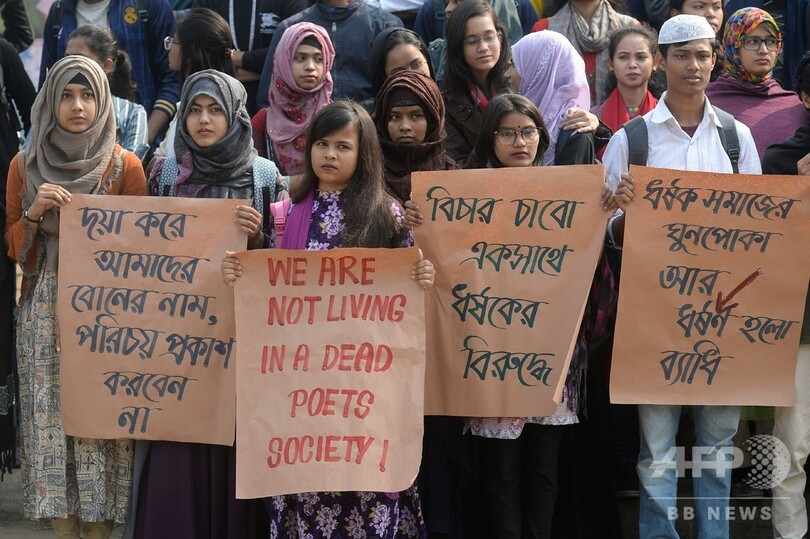 দয়া করে
আমাদের
বোনের নাম,
পরিচয় প্রকাশ
করবেন
না
WE ARE
NOT LIVING
IN A DEAD
POETS
SOCIETY!
বিচার চাবো
একসাথে
ধর্ষকের
বিরুদ্ধে
ধর্ষক সমাজের
ঘুনপোকা
আর
ধর্ষন হলো
ব্যাধি
AFP
BB NEWS